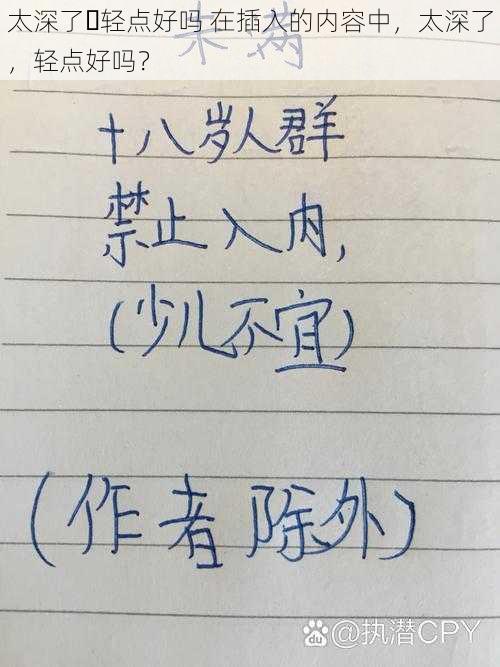 太深了▯轻点好吗 在插入的内容中，太深了
，轻点好吗？
未满
十八岁人群
禁止入内，
（少儿不宜）
（作者除外）
Bai du @执潜CPY